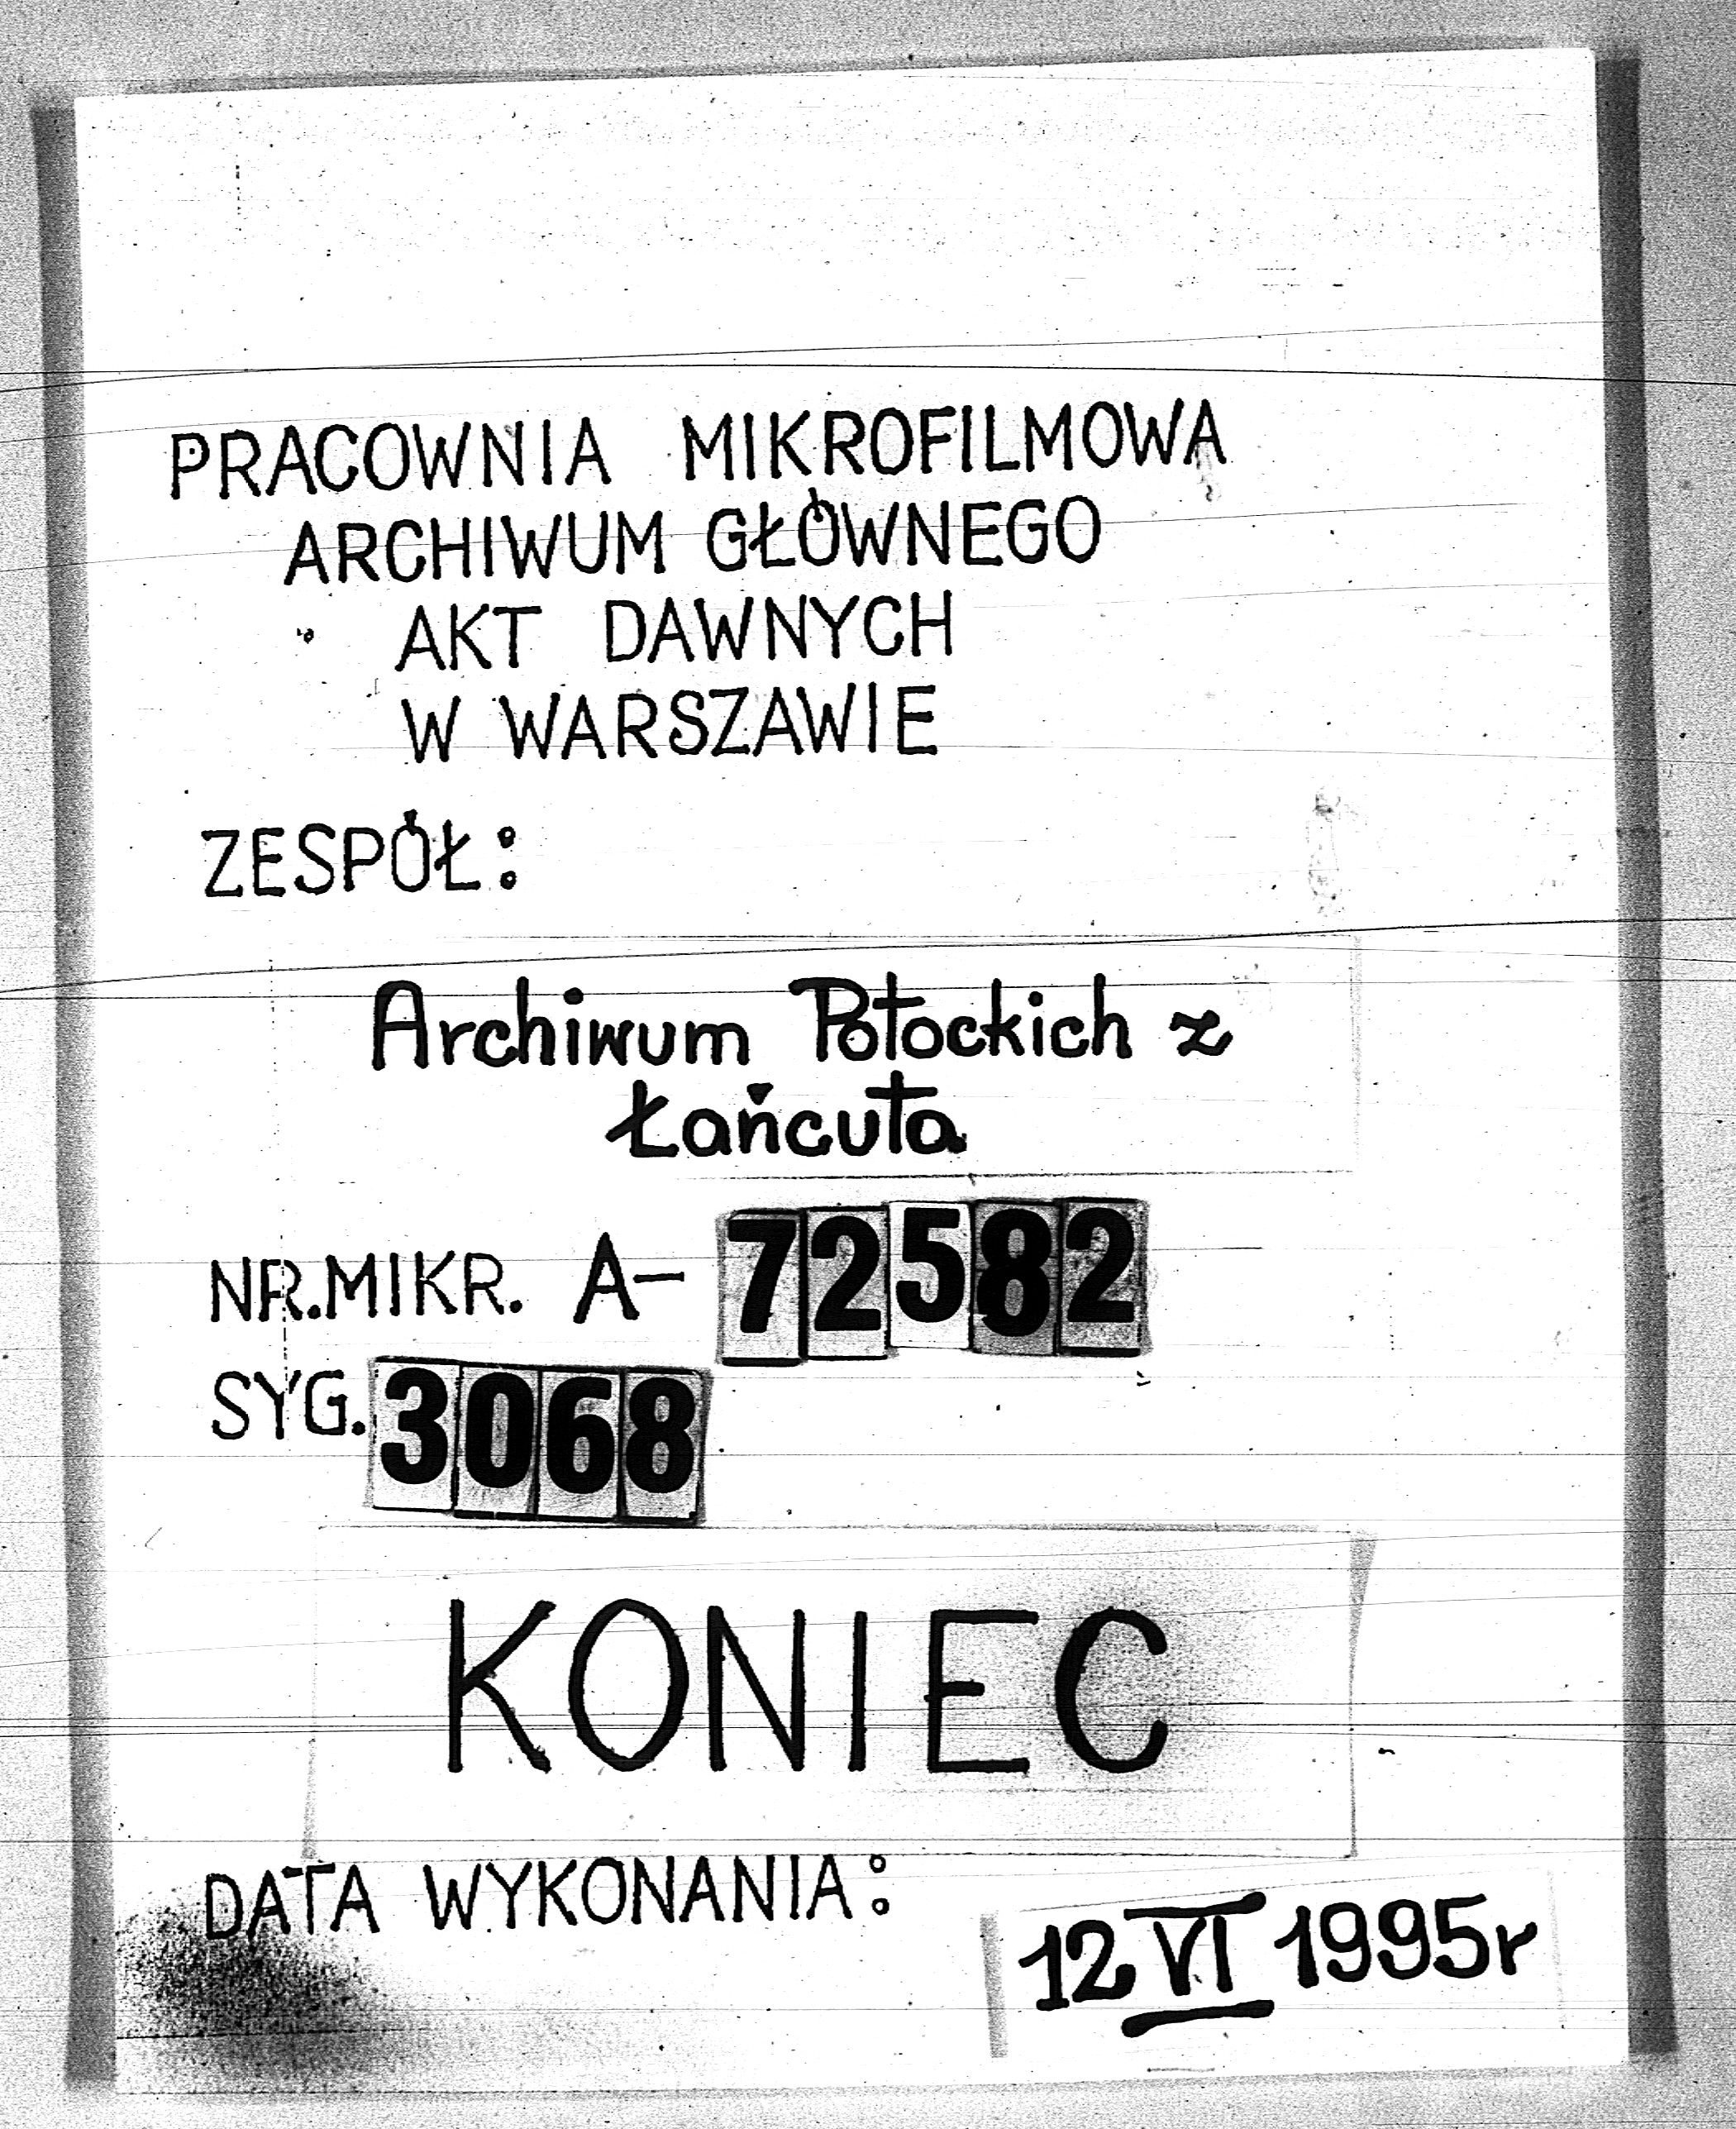 PRACOWNIA MIKROFILMOWA
ARCHIWUM GŁÓWNEGO
AKT DAWNYCH
W WARSZAWIE
ZESPÓŁ:
Archiwum Potockich z
Łańcuta
NR.MIKR. A-72582
SYG. 3068
KONIEC
DATA WYKONANIA:
12 VI 1995r